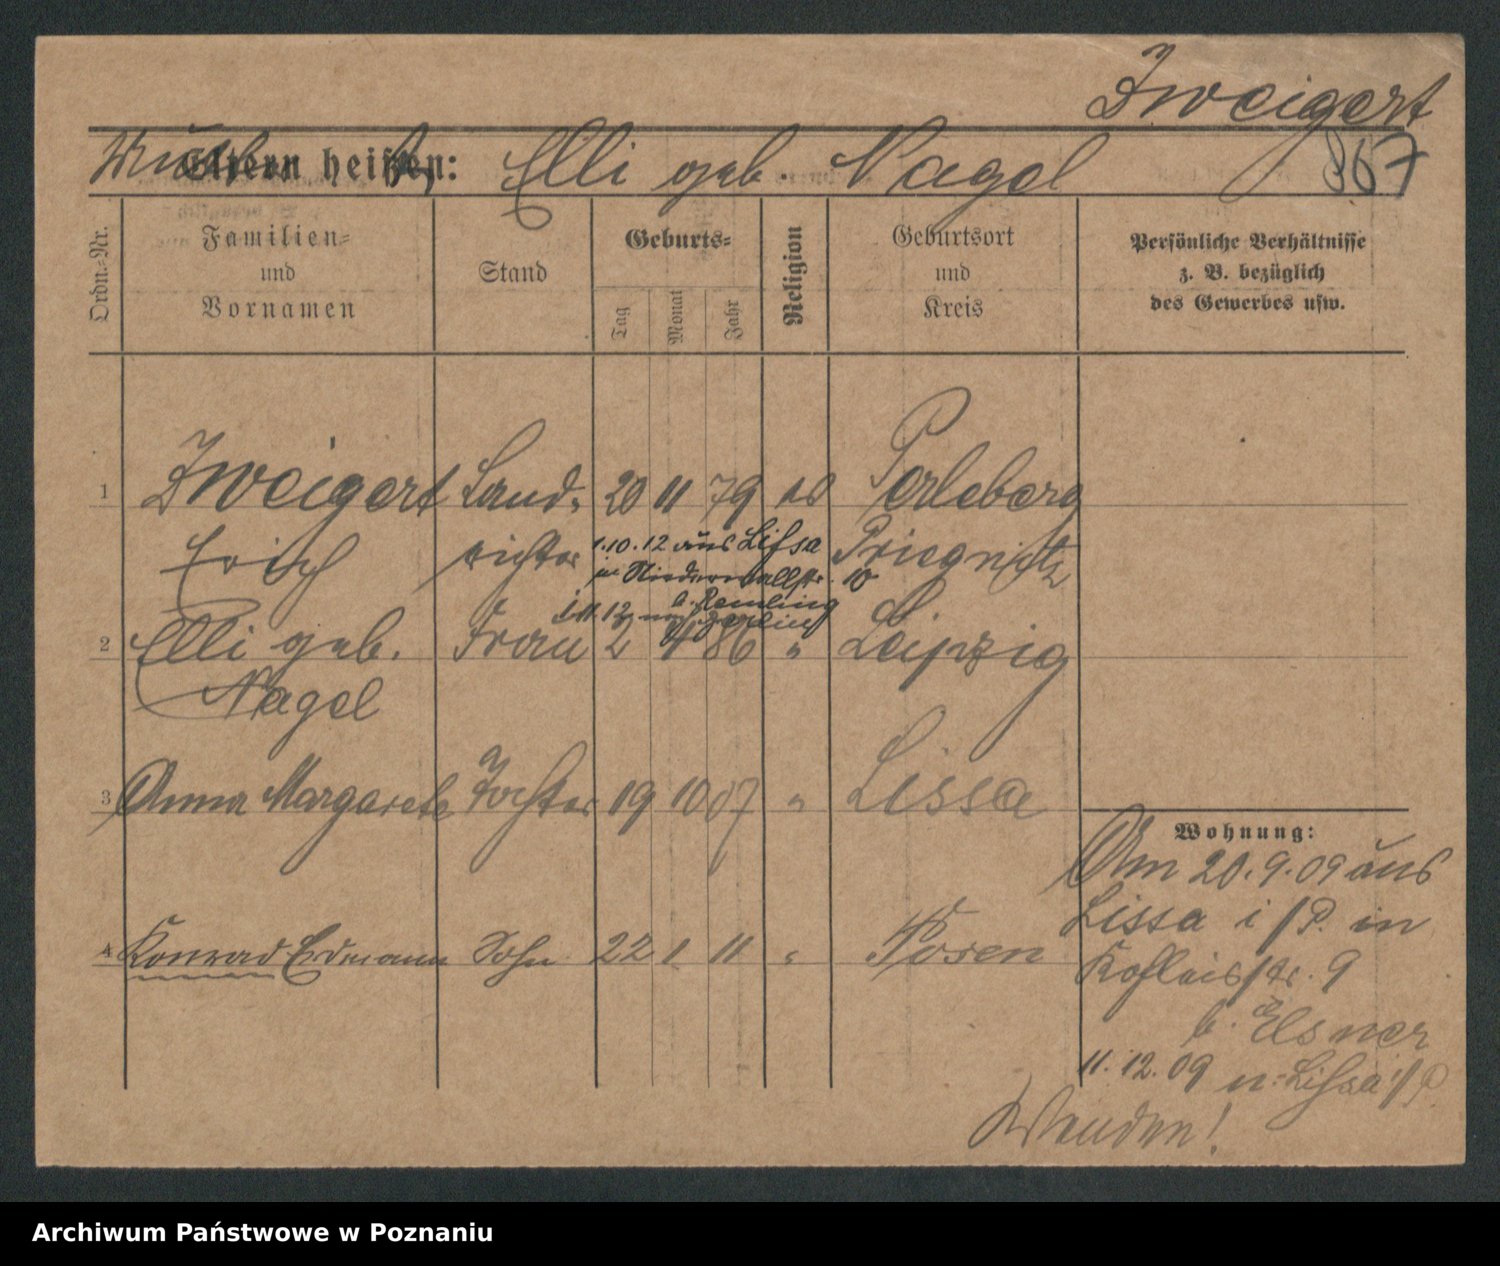 Zweigert
867
Eltern heißen: Elli geb. Nagel
Ordn.=Nr.
Familien=
und
Vornamen
Stand
Geburts=
Tag
Monat
Jahr
Religion
Geburtsort
und
Kreis
Persönliche Verhältnisse
z. B. bezüglich
des Gewerbes usw.
1 Zweigert Land- 20 11 79 Perleberg
Erich richter Priegnitz
1.10.12 aus Lissa
in Niederwallstr. 10
b. Remling
2 Elli geb. Frau 2 4 86 " Leipzig
Nagel
3 Anna Margarete Tochter 19 10 07 " Lissa
4 Konrad Erdmann Sohn 22 1 11 " Posen
Wohnung:
Am 20.9.09 aus
Lissa i/P. in
9
b. Elsner
11.12.09 n. Lissa i/P
Wenden!
Archiwum Państwowe w Poznaniu